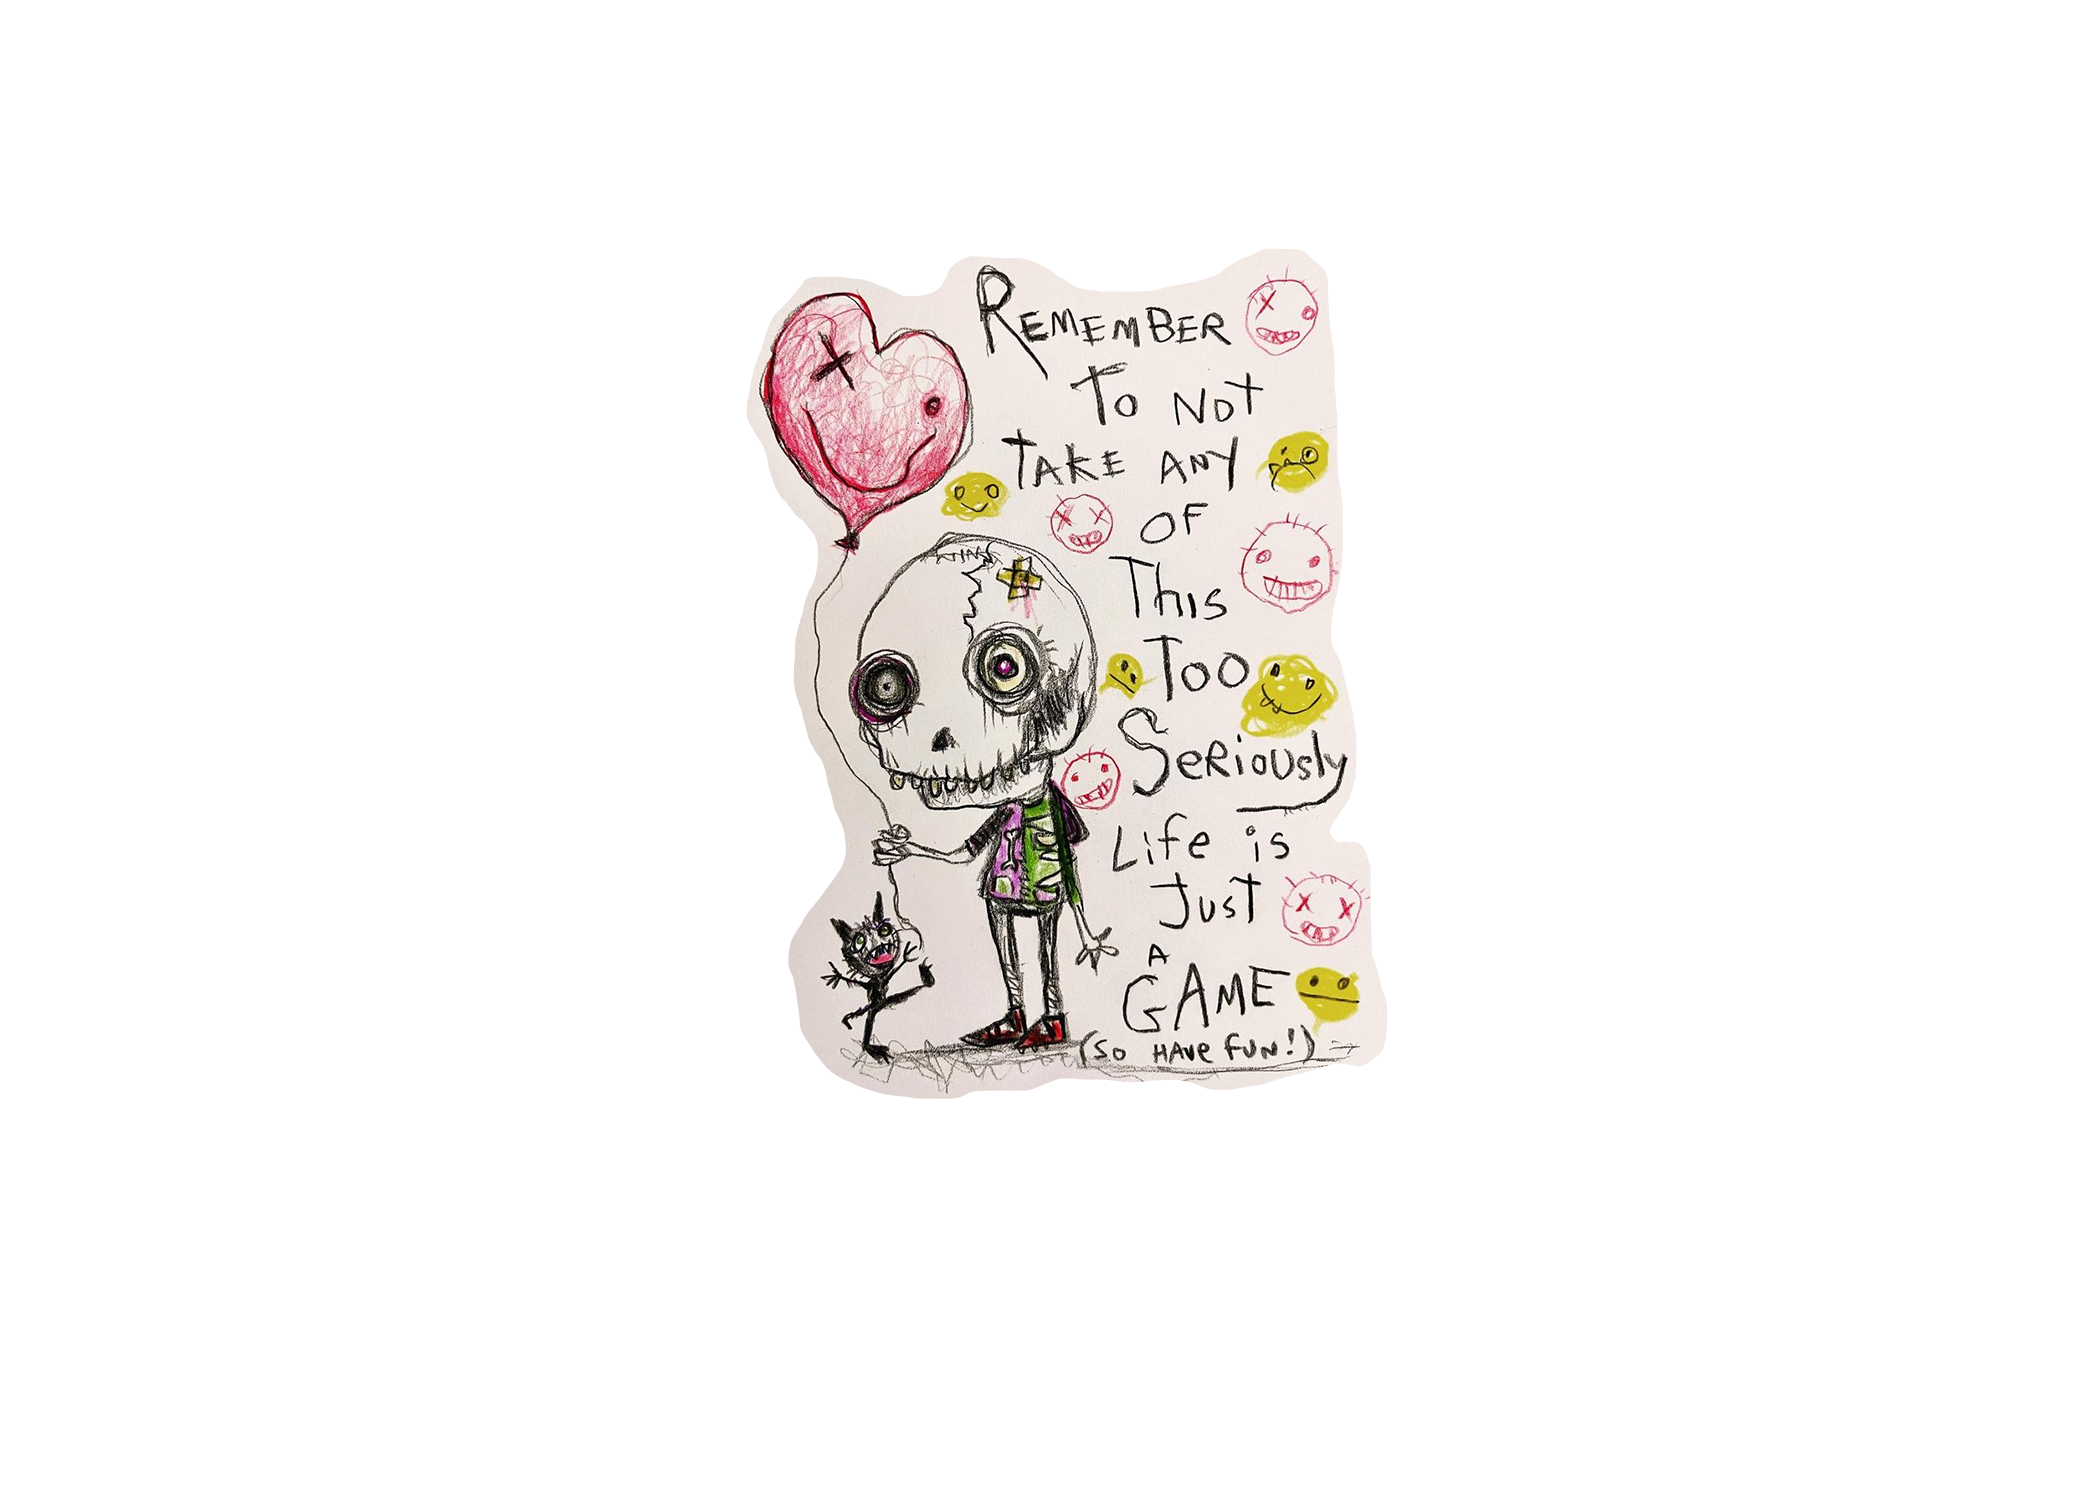 REMEMBER
TO NOT
TAKE ANY
OF
This
Too
SeRiously
Life is
Just
A
GAME
(SO HAVe FUN!)